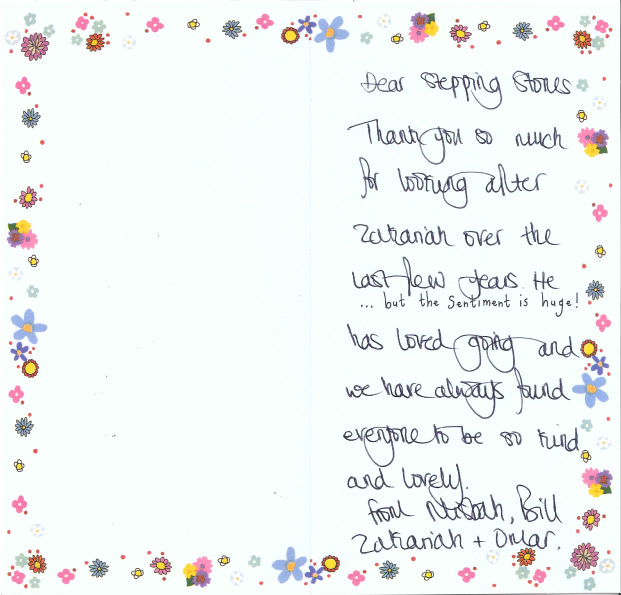 Dear Stepping Stones
Thank you so much
for looking after
Zakariah over the
last few years. He
... but the Sentiment is huge!
has loved going and
we have always found
everyone to be so kind
and lovely.
from Misbah, Bill
Zakariah + Omar.